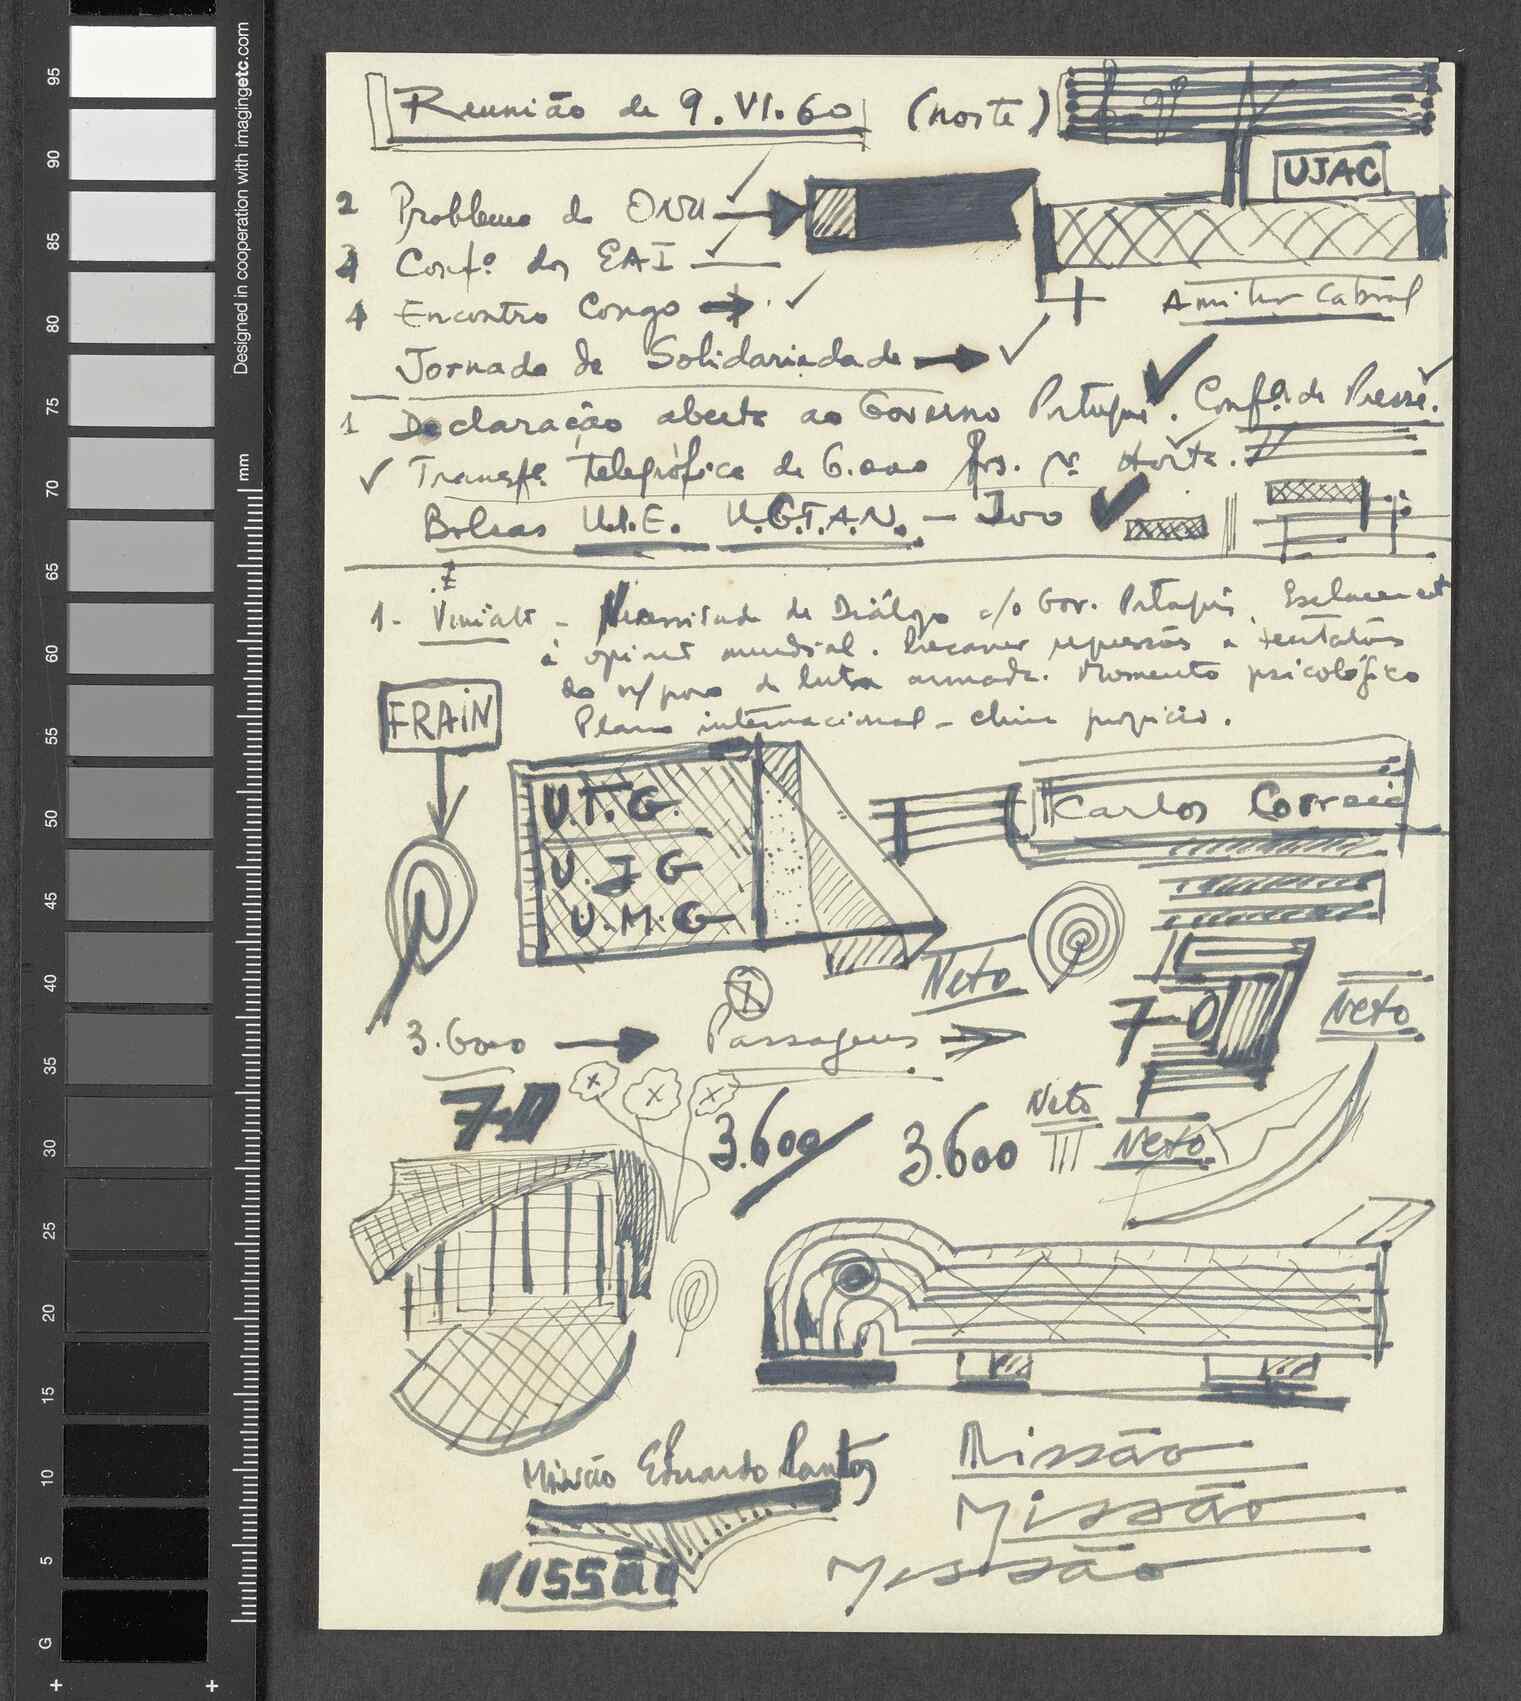 Reunião de 9.VI.60 (norte)
UJAC
2 Problema da ONU
3 Conf. dos EAI
4 Encontro Congo
Amilcar Cabral
Jornada de Solidariedade
1 Declaração aberta ao Governo Português. Conf. de Presse.
Transf. telegráfica de 6.000 frs. p.
Bolsas U.I.E. U.G.T.A.N. - 
1- Viriato - Necessidade de Diálogo c/o Gov. Português.
à mundial.
do n/povo de luta armada. Momento psicológico
Plano internacional - clima propício.
FRAIN
U.T.G.
U.J.G
U.M.G
Carlos Correia
Neto
3.6000 Passagens
7-0
Neto
7-0
3.600
3.600
Neto
Neto
Missão Eduardo Santos
Missão
Missão
Missão
MISSÃO
Designed in cooperation with imagingetc.com
mm
95
90
85
80
75
70
65
60
55
50
45
40
35
30
25
20
15
10
5
G